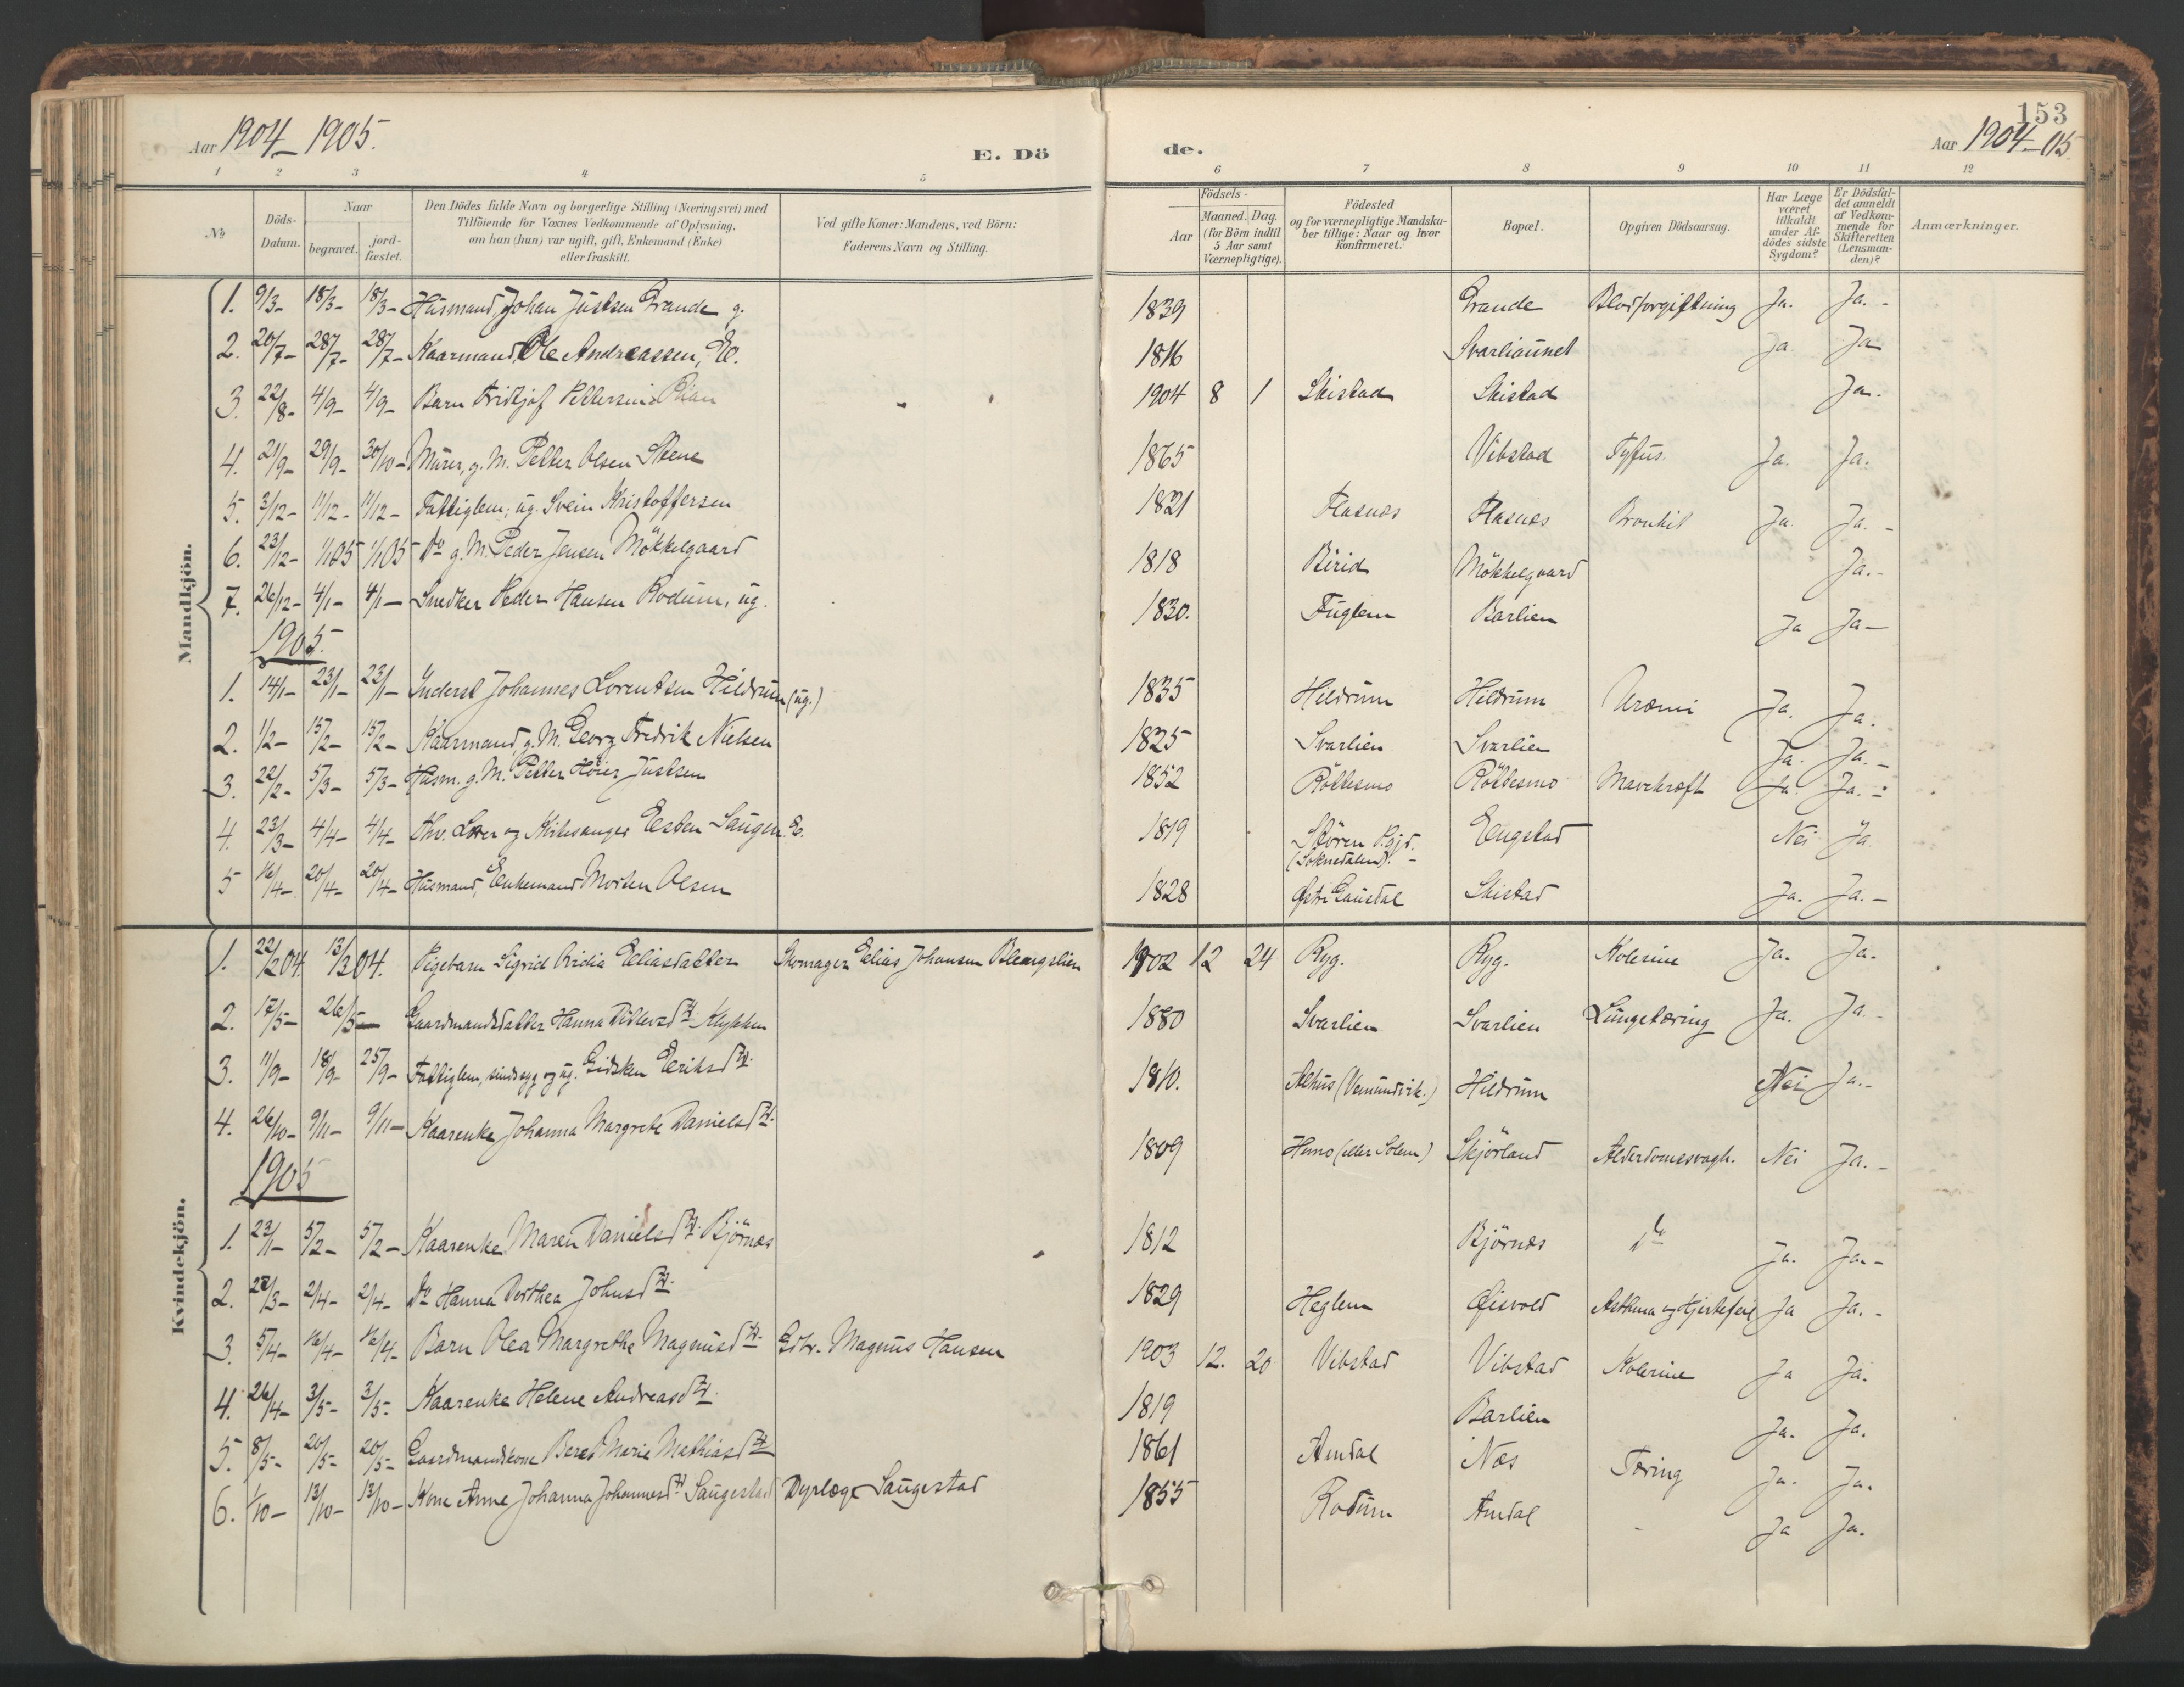 153
Aar 1904–1905.
E. Dö
de.
Aar 1904–05.
1 2 3 4 5 6 7 8 9 10 11 12
No
Döds-Datum.
Naar
begravet.
jord-fæstet.
Den Dödes fulde Navn og borgerlige Stilling (Næringsvei) med
Tilföiende for Voxnes Vedkommende af Oplysning,
om han (hun) var ugift, gift, Enkemand (Enke)
eller fraskilt.
Ved gifte Koner: Mandens, ved Börn:
Faderens Navn og Stilling.
Födsels-
Aar
Maaned. Dag.
(for Börn indtil
5 Aar samt
Værnepligtige).
Födested
og for værnepligtige Mandska-
ber tillige: Naar og hvor
konfirmeret.
Bopæl.
Opgiven Dödsaarsag.
Har Læge
været
tilkaldt
under Af-
dödes sidste
Sygdom?
Er Dödsfal-
det anmeldt
af Vedkom-
mende for
Skifteretten
(Lensman-
den)?
Anmærkninger.
Mandkjön.
1. 9/3– 18/3– 18/3– Husmand Johan Justsen Grande g. 1839 Grande Blodforgiftning Ja. Ja. –
2. 20/7– 28/7– 28/7– Kaarmand Ole Andreassen, E. 1816 Svarliaunet Ja Ja
3. 22/8– 4/9– 4/9– Barn Fridtjof Pettersen 1904 8 1 Skistad Skistad Ja.
4. 21/9– 29/9– 30/10– Murer, g. M. Petter Olsen Stene 1865 Vibstad Tyfus. Ja. Ja.
5. 3/12– 11/12– 11/12– Fattiglem, ug. Svein Kristoffersen 1821 Flasnes Flasnes Bronkit Ja. Ja. –
6. 23/12– 1/1 05 1/1 05 Do g. M. Peder Jensen Mökkelgaard 1818 Birid Mökkelgaard Ja. –
7. 26/12– 4/1– 4/1– Snedker Peder Hansen Rodum, ug. 1830. Fuglem Barlien Ja Ja –
1905.
1. 14/1– 23/1– 23/1– Inderst Johannes Lorentsen Hildrum (ug.) 1835 Hildrum Hildrum Uræmi Ja. Ja.
2. 1/2– 15/2– 15/2– Kaarmand, g. M. Georg Fredrik Nielsen 1825 Svarlien Svarlien Ja. Ja. –
3. 22/2– 5/3– 5/3– Husm. g. M. Petter Höier Justsen 1852 Röttesmo Röttesmo Mavekræft Ja. Ja. –
4. 23/3– 4/4– 4/4– fhv. Lærer og Kirkesanger Esten Saugen E. 1819 Stören Pgjd. (Soknedalen). – Engstad Nei Ja
5 16/4– 20/4– 20/4– Husmand, Enkemand Morten Olsen 1828 Østre Gausdal Skistad Ja. Ja. –
Kvindekjön.
1. 22/2 04. 13/3 04. Pigebarn Sigrid Eliasdatter Skomager Elias Johansen 1902 12 24 Ryg. Ryg. Kolerine Ja. Ja.
2. 17/5– 26/5– Gaardmandsdatter Hanna Ditlevsdtr. Klykken 1880 Svarlien Svarlien Lungetæring Ja. Ja. –
3. 11/9– 18/9– 25/9– Fattiglem, sindssyg og ug. Gidsken Eriksdtr. 1810. (Vemundvik.) Hildrum Nei Ja. –
4. 26/10– 9/11– 9/11– Kaarenke Johanna Margrete Danielsdtr. 1809 Hemo (eller Solem) Skjörland Alderdomssvagh. Nei Ja. –
1905
1. 23/1– 5/2– 5/2– Kaarenke Maren Danielsdtr. Björnes 1812 Björnes do Ja. Ja. –
2. 28/3– 2/4– 2/4– Do Hanna Dorthea Johnsdtr. 1829 Heglem Øisvold Asthma og Hjertefeil Ja Ja. –
3. 5/4– 16/4– 16/4– Barn Olea Margrethe Magnusdtr. Gdbr. Magnus Hansen 1903 12. 20 Vibstad Vibstad Kolerine Ja Ja.
4. 26/4– 3/5– 3/5– Kaarenke Helene Andreasdtr. 1819 Barlien Ja. Ja.
5. 8/5– 20/5– 20/5– Gaardmandskone Beret Marie Mathiasdtr 1861 Amdal Næs Tæring Ja. Ja.
6. 1/10– 13/10– 13/10– Kone Anne Johanna Johannesdtr. Saugestad Dyrlæge Saugestad 1855 Rodum Amdal – Ja Ja.